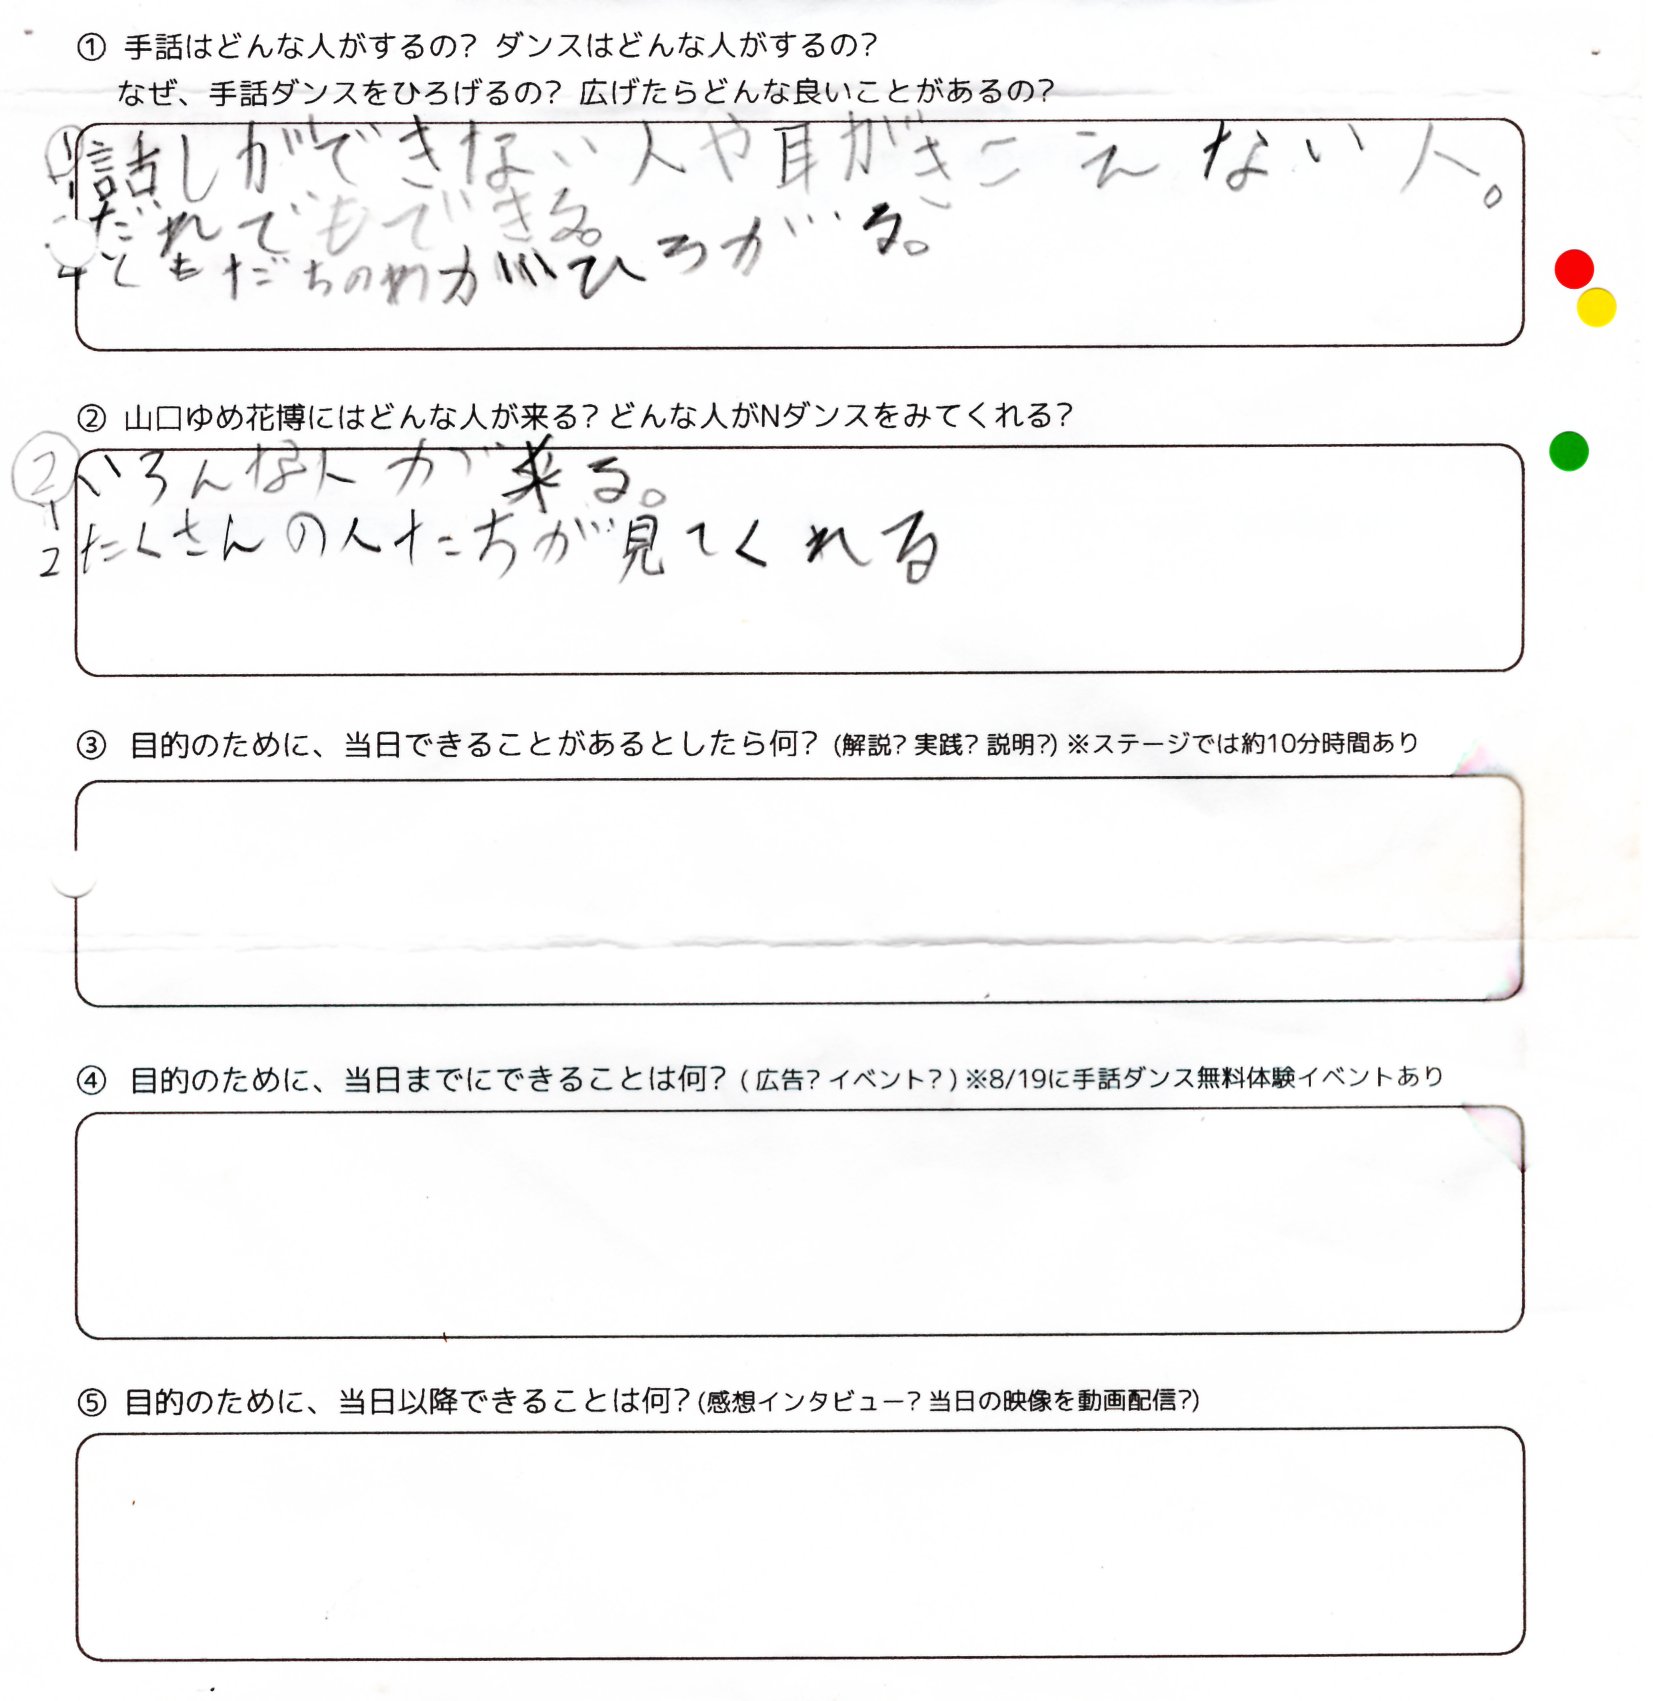 ① 手話はどんな人がするの? ダンスはどんな人がするの?
なぜ、手話ダンスをひろげるの? 広げたらどんな良いことがあるの?
① 話しができない人や耳がきこえない人。
だれでもできる。
4 ともだちのわがひろがる。
② 山口ゆめ花博にはどんな人が来る? どんな人がNダンスをみてくれる?
② 1 いろんな人が来る。
2 たくさんの人たちが見てくれる
③ 目的のために、当日できることがあるとしたら何? (解説? 実践? 説明?) ※ステージでは約10分時間あり
④ 目的のために、当日までにできることは何? ( 広告? イベント? ) ※8/19に手話ダンス無料体験イベントあり
⑤ 目的のために、当日以降できることは何? (感想インタビュー? 当日の映像を動画配信?)